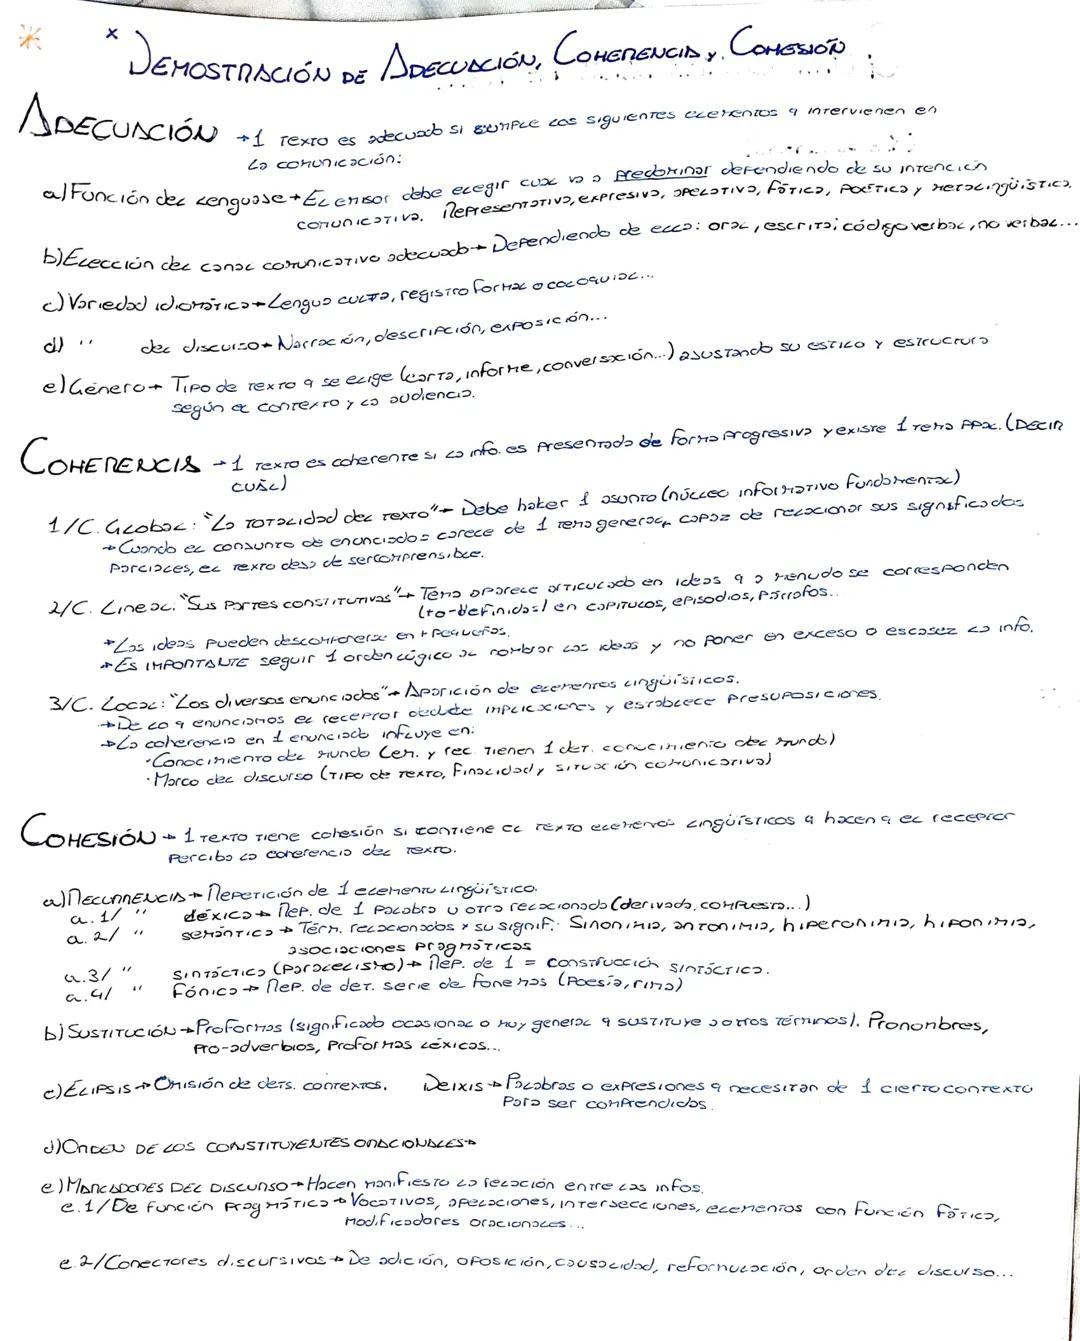 * x DEMOSTRACIÓN DE ADECUACIÓN, COHERENCIA y COHESIÓN
ADECUACIÓN → 1 texto es adecuado si cumple los siguientes elementos q intervienen en
la comunicación:
a) Función del lenguaje → El emisor debe elegir cual va a predominar dependiendo de su intención
comunicativa. Representativa, expresiva, apelativa, fática, poética y metalingüística.
b) Elección del canal comunicativo adecuado → Dependiendo de ello: oral, escrita; código verbal, no verbal...
c) Variedad idiomática → Lengua culta, registro formal o coloquial...
d) " del discurso → Narración, descripción, exposición...
e) Género → Tipo de texto q se elige (carta, informe, conversación...) ajustando su estilo y estructura
según el contexto y la audiencia.
COHERENCIA → 1 texto es coherente si la info. es presentada de forma progresiva y existe 1 tema ppal. (DECIR
CUÁL)
1/ C. Global: "La totalidad del texto" → Debe haber 1 asunto (núcleo informativo fundamental)
→ Cuando el conjunto de enunciados carece de 1 tema general, capaz de relacionar sus significados
parciales, el texto deja de ser comprensible.
2/ C. Lineal: "Sus partes constitutivas" → Tema aparece articulado en ideas q a menudo se corresponden
(to-definidas) en capítulos, episodios, párrafos..
→ Las ideas pueden descomponerse en + pequeñas.
→ Es IMPORTANTE seguir 1 orden lógico al nombrar las ideas y no poner en exceso o escasez la info.
3/ C. Local: "Los diversos enunciados" → Aparición de elementos lingüísticos.
→ De lo q enunciamos el receptor deduce implicaciones y establece presuposiciones.
→ La coherencia en 1 enunciado influye en:
· Conocimiento del mundo (em. y rec. tienen 1 det. conocimiento del mundo)
· Marco del discurso (tipo de texto, finalidad y situación comunicativa)
COHESIÓN → 1 texto tiene cohesión si contiene el texto elementos lingüísticos q hacen q el receptor
perciba la coherencia del texto.
a) RECURRENCIA → Repetición de 1 elemento lingüístico.
a.1/ " léxica → Rep. de 1 palabra u otra relacionada (derivada, compuesta...)
a.2/ " semántica → Térm. relacionados x su signif.: Sinonimia, antonimia, hiperonimia, hiponimia,
asociaciones pragmáticas
a.3/ " sintáctica (paralelismo) → Rep. de 1 = construcción sintáctica.
a.4/ " fónica → Rep. de det. serie de fonemas (Poesía, rima)
b) SUSTITUCIÓN → Proformas (significado ocasional o muy general q sustituye a otros términos). Pronombres,
pro-adverbios, proformas léxicas...
c) ELIPSIS → Omisión de dets. contextos. Deixis → Palabras o expresiones q necesitan de 1 cierto contexto
para ser comprendidas.
d) ORDEN DE LOS CONSTITUYENTES ORACIONALES →
e) MARCADORES DEL DISCURSO → Hacen manifiesto la relación entre las infos.
e.1/ De función pragmática → Vocativos, apelaciones, intersecciones, elementos con función fática,
modificadores oracionales...
e.2/ Conectores discursivos → De adición, oposición, causalidad, reformulación, orden del discurso...